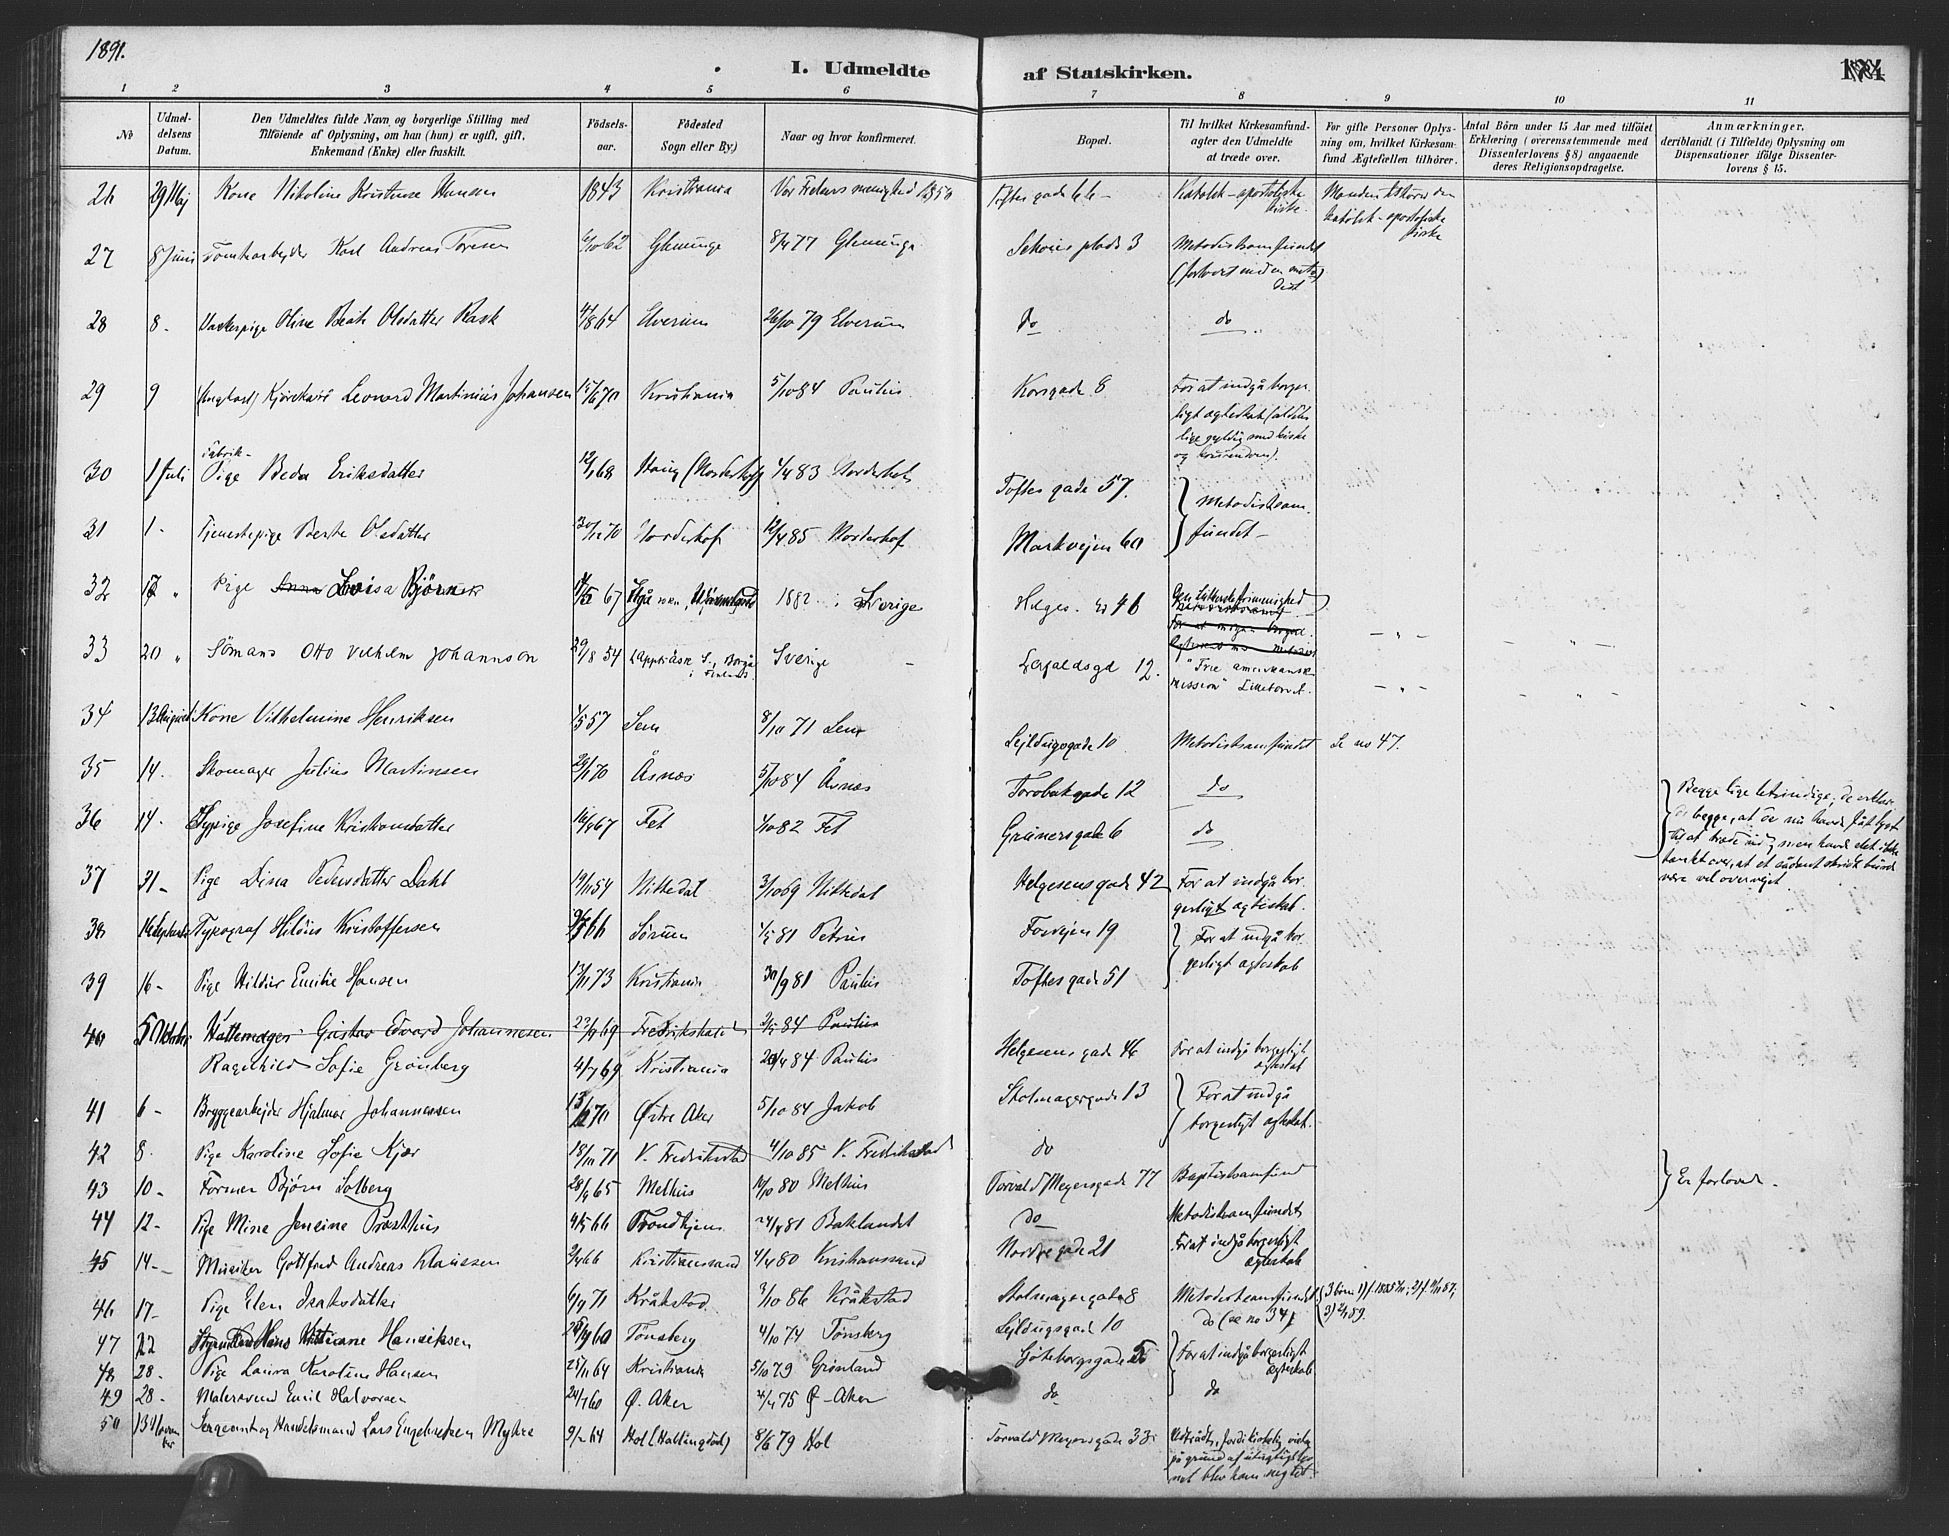 1891.
I. Udmeldte af Statskirken.
1 2 3 4 5 6 7 8 9 10 11
No
Udmel-
delsens
Datum.
Den Udmeldtes fulde Navn og borgerlige Stilling med
Tilföiende af Oplysning, om han (hun) er ugift, gift,
Enkemand (Enke) eller fraskilt.
Födsels-
aar.
Födested
Sogn eller By.)
Naar og hvor konfirmeret.
Bopæl.
Til hvilket Kirkesamfund-
agter den Udmeldte
at træde over.
For gifte Personer Oplys-
ning om, hvilket Kirkesam-
fund Ægtefællen tilhörer.
Antal Börn under 15 Aar med tilföiet
Erklæring (overensstemmende med
Dissenterlovens §8) angaaende
deres Religionsopdragelse.
Anmærkninger,
deriblandt (i Tilfælde) Oplysning om
Dispensationer ifölge Dissenter-
lovens § 15.
26 29 Maj Kone Nikoline Kristine Hansen 1843 Kristiania Vor Frelsers menighed Toftes gade 66 Katolsk-apostoliske
kirke. Manden tilhører den
katolsk-apostoliske
kirke
27 8 Juni Tomtearbejder Karl Andreas Toresen 6/10 62 Glemminge 8/4 77 Glemminge plads 3 Metodistsamfundet
(forlovet med en meto-
dist)
28 8 - pige Oline Beate Olsdatter Rask 4/8 64 Elverum 26/10 79 Elverum do do
29 9 (Ungkarl) Kjørekarl Leonard Martinius Johansen 15/6 70 Kristiania 5/10 84 Paulus Korsgade 8 For at indgå borger-
ligt ægteskab
30 1 Juli Fabrik-
Pige Beda Eriksdatter 12/1 68 Haug (Norderhof) 1/4 83 Norderhof Toftes gade 57. Metodistsam-
fundet -
31 1 - Tjenestepige Berte Olsdatter 30/12 70 Norderhof 12/4 85 Norderhof Markvejen 60
32 17 " Pige Anna Lovisa Björk 67 1882 i Sverige Helges. gd 46 Ev. Lutherske frimenighed
33 20 " Sömand Otto Vilhelm Johannson 29/8 54 Lappträsk S., Borgå
i Finland. Sverige 12. "Frie amerikanske
mission" Lilletorvet. - " -
34 13 August Kone Vilhelmine Henriksen 1/5 57 Sem 8/10 71 Sem Sejldugsgade 10 Metodistsamfundet Se no 47.
35 14. Skomager Julius Martinsen 29/1 70 Åsnes 5/10 84 Åsnes Torvbakgade 12 do
36 14. Sypige Josefine Kristiansdatter 16/9 67 Fet 1/10 82 Fet Grünersgade 6 do
Begge lige letsindige; de erklære-
de begge, at de nu havde fåt lyst
til at træde ud, men havde det ikke
tænkt over, at et sådant skridt burde
være vel overvejet.
37 21 - Pige Dina Pedersdatter Dahl 19/11 54 Nittedal 3/10 69 Nittedal Helgesensgade 42 For at indgå bor-
gerligt ægteskab.
38 16 September Typograf Hilding Kristoffersen 66 Sørum 1/5 81 Petrus Fossvejen 19 For at indgå bor-
gerligt ægteskab
39 16 - Pige Hildur Emilie Hansen 13/11 73 Kristiania 30/9 81 Paulus Toftes gade 51
40 5 Oktober Hattemager Gustav Edvard Johannesen 22/9 69 Fredrikshald 84 Paulus
Ragnhild Sofie Grønberg 4/7 69 Kristiania 20/4 84 Paulus Helgesens gade 46 For at indgå borgerligt
ægteskab
41 6 - Bryggearbejder Hjalmar Johannessen 70 Østre Aker 5/10 84 Jakob Skolmagergade 13 For at indgå
borgerligt ægteskab.
42 8. Pige Karoline Sofie Kjær 18/10 71 V. Fredrikstad 4/10 85 V. Fredrikstad do
43 10 - Former Bjørn Solberg 28/9 65 Melhus 10/10 80 Melhus Torvald Meyersgade 77 Baptistsamfund
} Er forlovede.
44 12 - Pige Mina Jensine Prasthus 4/5 66 Trondhjem 24/4 81 Baklandet do Metodistsamfundet
45 14 - Musiker Gottfred Andreas Klausen 2/4 66 Kristianssand 4/4 80 Kristianssand Nordregade 21 For at indgå borgerligt
ægteskab
46 17. Pige Elen Isaksdatter 6/4 71 Kråkstad 3/10 86 Kråkstad Skolmagergade 8 Metodistsamfundet
47 22 Hans Henriksen 60 Tønsberg 4/10 74 Tønsberg Sejldugsgade 10 do (se no 34) (3 børn 1) f. 1885
48 28. Pige Laura Karoline Hansen 25/11 64 Kristiania 5/10 79 Grønland Gøteborgsgade 5 For at indgå borgerligt
ægteskab
49 28. Malersvend Emil Halvorsen 24/7 60 Ø. Aker 4/4 75 Ø. Aker do do
50 13 Novem-
ber Sergeant og Handelsmand Lars Engebretsen Myhre 9/2 64 Hol (Hallingdal) 8/6 79 Hol Torvald Meyersgade 33. Udtrådt, fordi kirkelig vielse
på grund af utugtigt lev-
net blev ham nægtet.